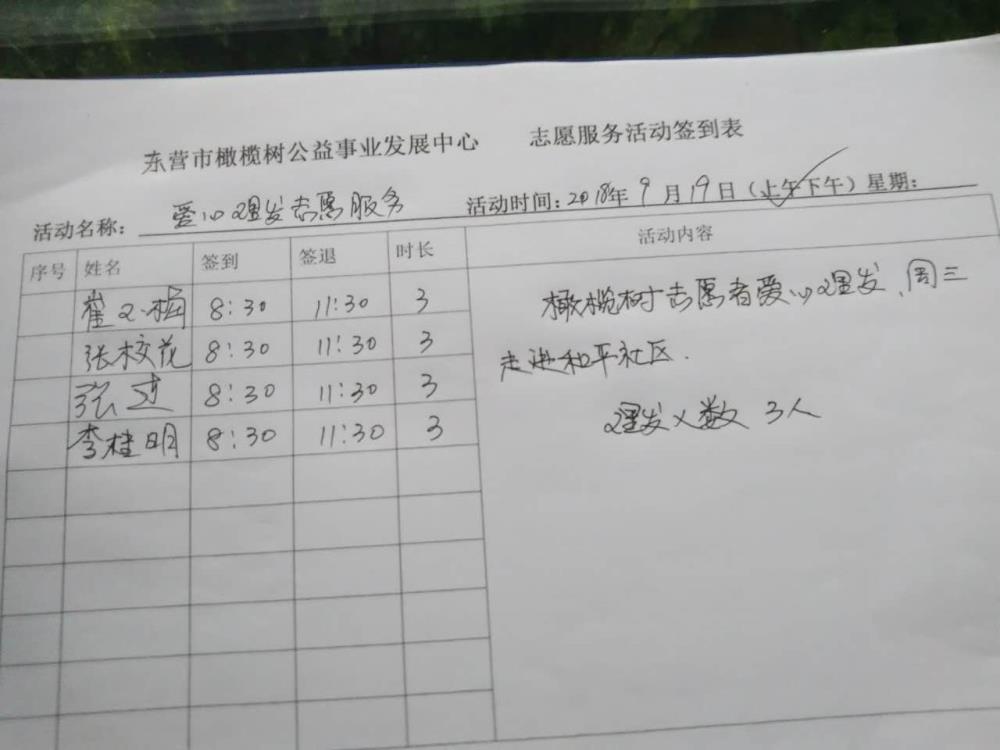 东营市橄榄树公益事业发展中心 志愿服务活动签到表
活动名称: 爱心理发志愿服务 活动时间: 2018年 9月 19日 (上午下午) 星期:
序号 姓名 签到 签退 时长 活动内容
崔 梅 8:30 11:30 3
张校花 8:30 11:30 3
张 8:30 11:30 3
李桂明 8:30 11:30 3
橄榄树志愿者爱心理发,周三
走进和平社区.
理发人数 3人